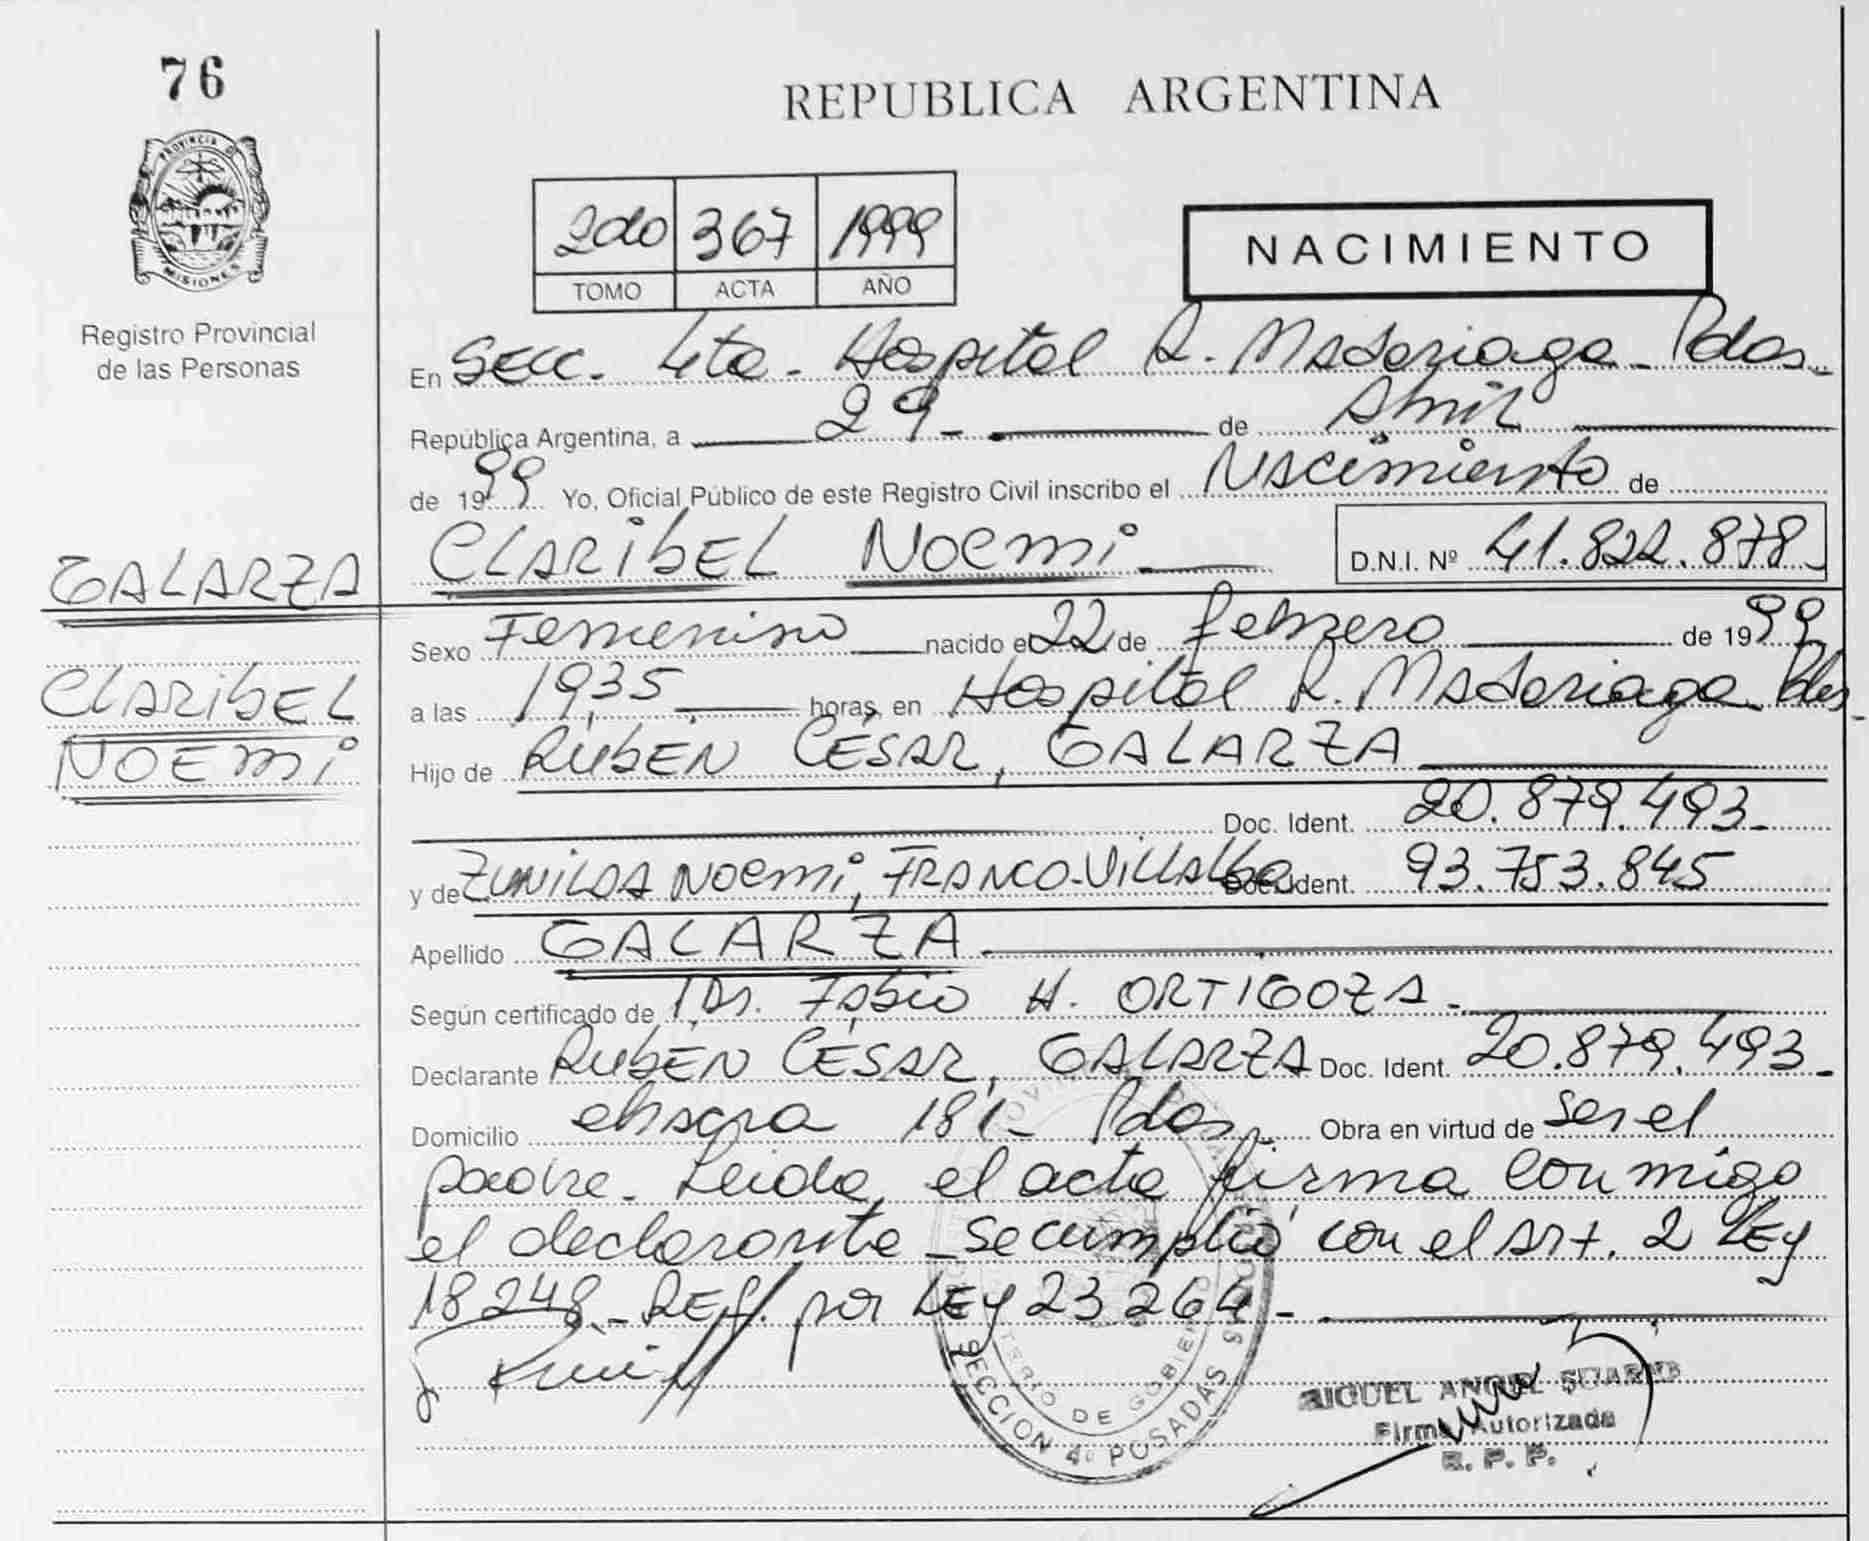 76
PROVINCIA D
MISIONES
Registro Provincial
de las Personas
GALARZA
CLARIBEL
NOEMI
REPUBLICA ARGENTINA
2do 367 1999
TOMO ACTA AÑO
NACIMIENTO
En Secc. 4ta - Hospital R. Madariaga - Pdas.
República Argentina, a 29 - de Abril
de 1999 Yo, Oficial Público de este Registro Civil inscribo el Nacimiento de
CLARIBEL NOEMI D.N.I. Nº 41.822.878
Sexo Femenino nacido el 22 de febrero de 1999
a las 1935 horas, en Hospital R. Madariaga Pdas.
Hijo de RUBEN CÉSAR, GALARZA
Doc. Ident. 20.879.493-
y de ZUNILDA NOEMI, FRANCO-VILLALBA Doc. Ident. 93.753.845
Apellido GALARZA -
Según certificado de Dr. Fabio H. ORTIGOZA -
Declarante RUBEN CÉSAR, GALARZA Doc. Ident. 20.879.493-
Domicilio 181- Pdas. Obra en virtud de ser el
padre. Leida, el acta firma conmigo
el declarante - Se cumplió con el Art. 2 Ley
18248 - Ref. por Ley 23264 -
SECCION 4º POSADAS
DE GOBIERNO
MIGUEL ANGEL SUAREZ
Firma Autorizada
R. P. P.